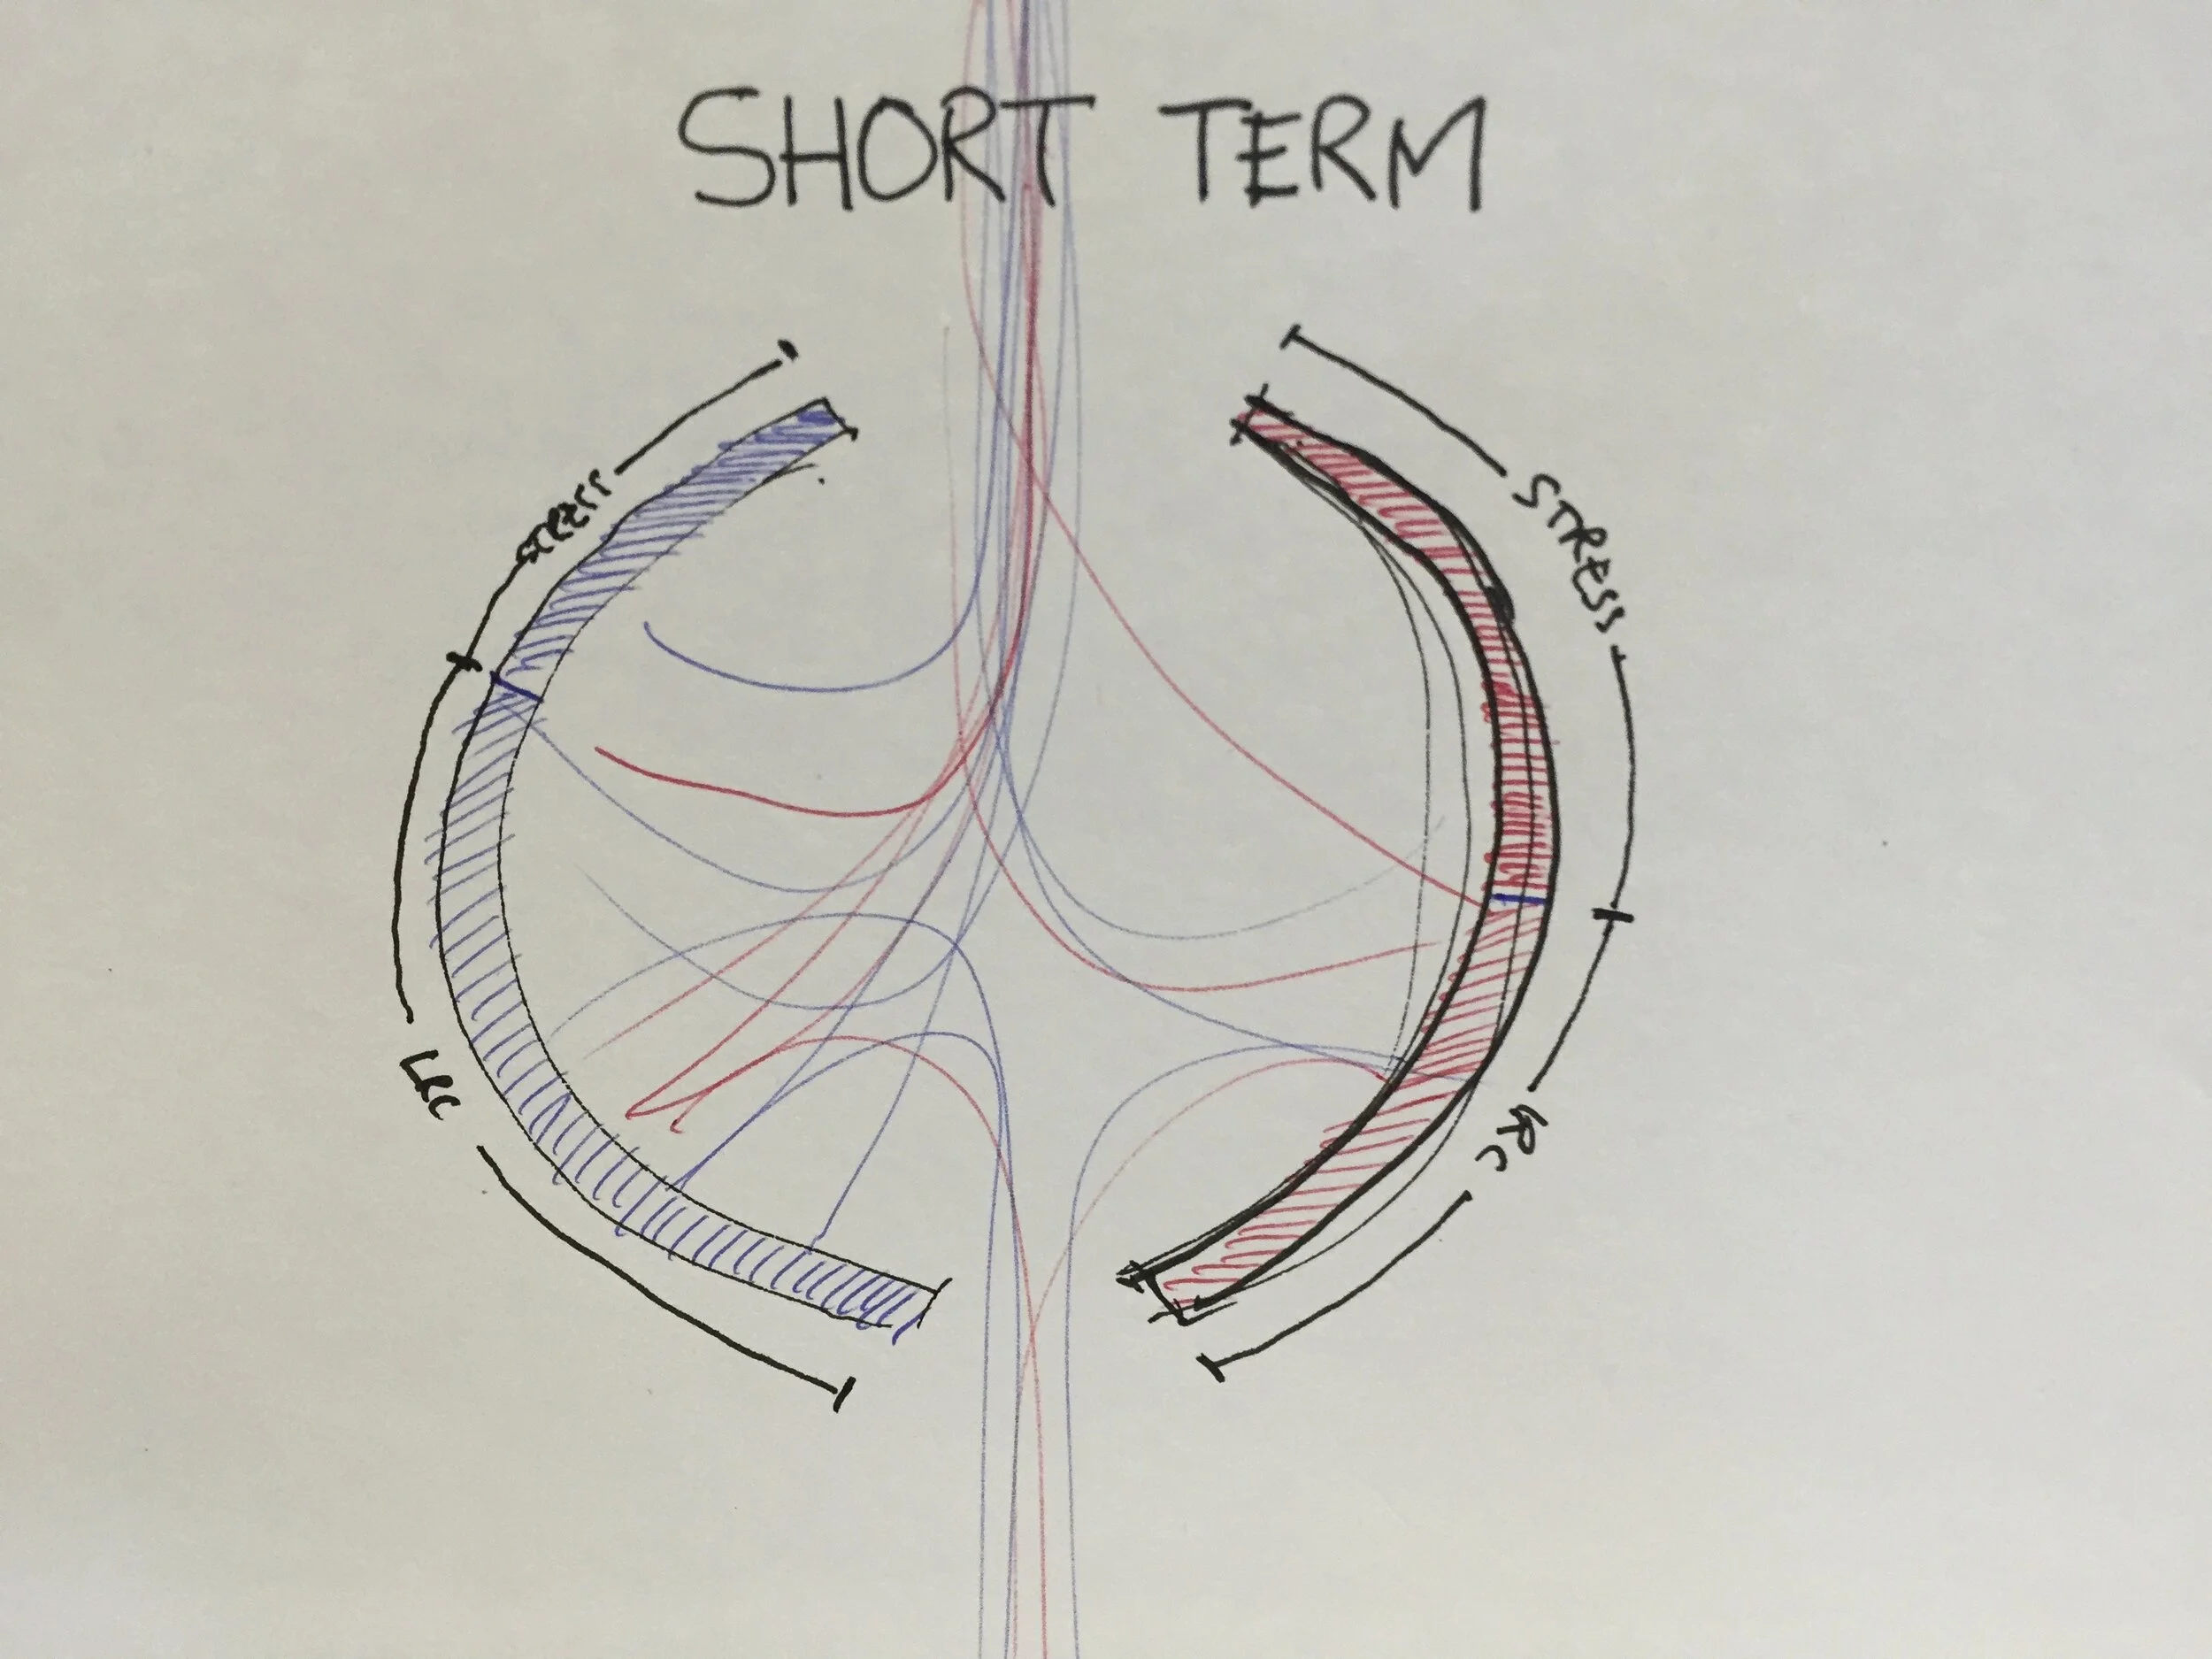 SHORT TERM
STRESS
STRESS
LRC